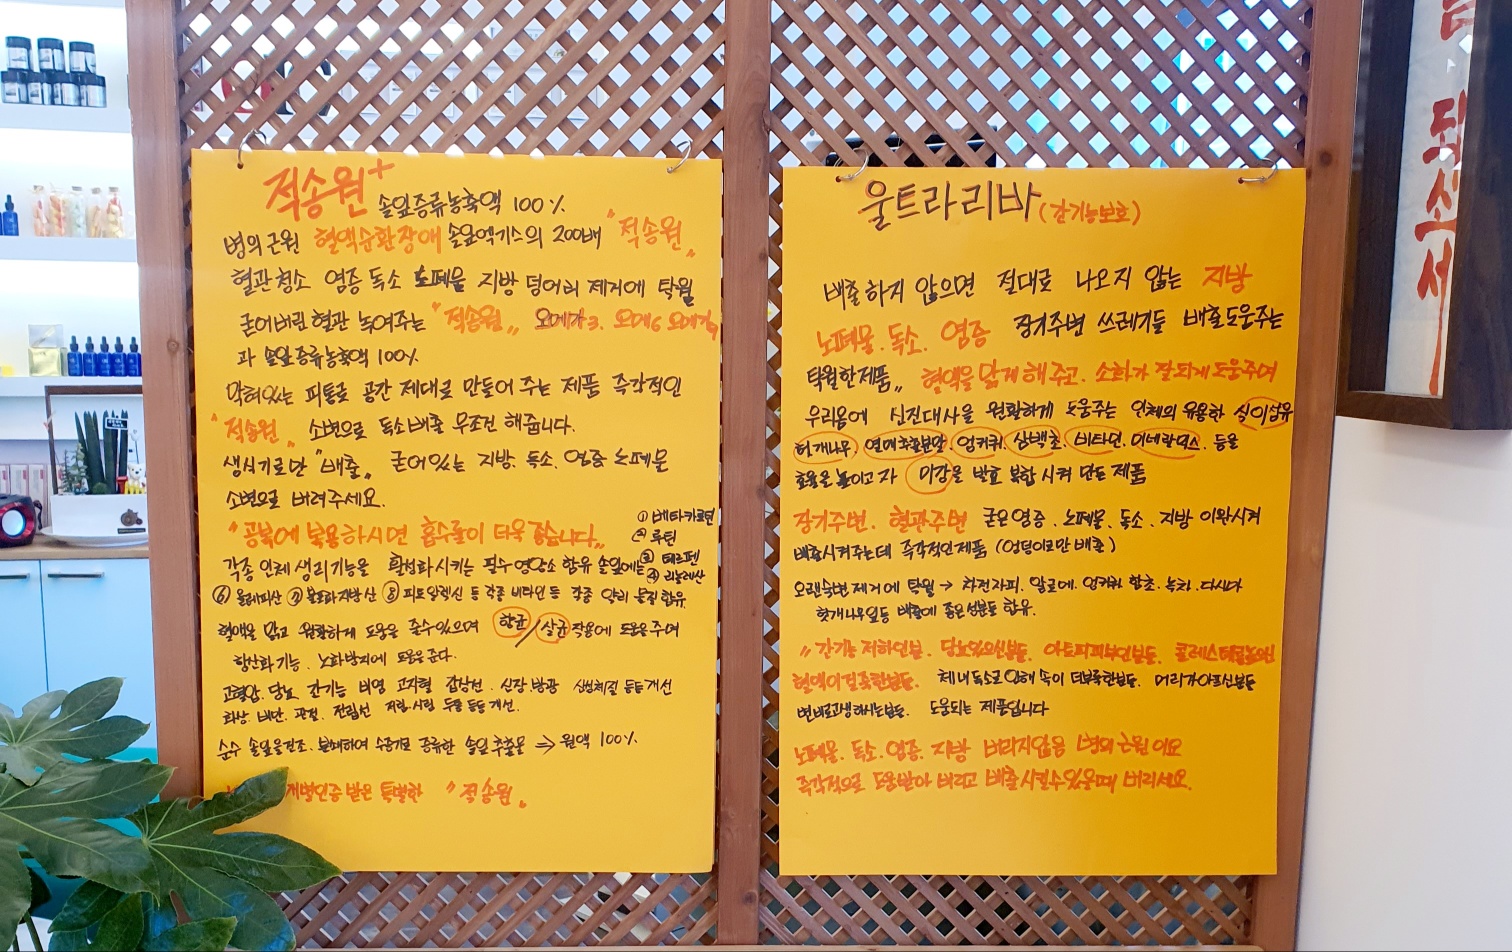 적송원+ 솔잎증류농축액 100%
병의 근원 혈액순환장애 솔잎엑기스의 200배 "적송원"
혈관청소 염증 독소 노폐물 지방 덩어리 제거에 탁월
굳어버린 혈관 녹여주는 "적송원" 오메가3. 오메6 오메가9
과 솔잎증류농축액 100%
막혀있는 피통로 공간 제대로 만들어 주는 제품 즉각적인
"적송원" 소변으로 독소배출 무조건 해줍니다.
생식기로만 "배출" 굳어있는 지방. 독소. 염증 노폐물
소변으로 버려주세요.
"공복에 복용하시면 흡수률이 더욱 좋습니다"
① 베타카로틴
② 루틴
각종 인체 생리기능을 활성화시키는 필수영양소 함유 솔잎에는 ③ 테르펜
④ 리놀레산
⑥ 올레피산 ⑦ 불포화지방산 ⑧ 피토알렉신 등 각종 비타민 등 각종 약리 물질 함유.
혈액을 맑고 원활하게 도움을 줄수있으며 항균/살균작용에 도움을 주며
항산화기능. 노화방지에 도움을 준다.
고혈압. 당뇨 간기능 비염 고지혈 갑상선. 신장 방광 생성체질 등등 개선
화상. 비만. 관절. 전립선 저림.시림 두통 등등 개선.
순수 솔잎을건조.분쇄하여 수증기로 증류한 솔잎추출물 ⇒ 원액 100%
개별인증 받은 특별한 "적송원"
울트라리바 (간기능보호)
배출하지 않으면 절대로 나오지 않는 지방
노폐물. 독소. 염증 장기주변 쓰레기들 배출도움주는
탁월한제품" 혈액을 맑게 해주고. 소화가 잘되게 도움주며
우리몸에 신진대사을 원활하게 도움주는 인체의 유용한 식이섬유
허개나무, 열매추출분말, 엉커퀴, 삼백초, 비타민, 미네랄믹스. 등을
효율을 높이고자 미강을 발효 복합시켜 만든 제품
장기주변. 혈관주변 굳은염증. 노폐물. 독소. 지방 이완시켜
배출시켜주는데 즉각적인제품 (엉덩이로만 배출)
오랜숙변 제거에 탁월 → 차전자피. 알로에. 엉커퀴 함초. 녹차. 다시마
헛개나무잎등 배출에 좋은성분들 함유.
"간기능 저하인분. 당뇨있으신분들. 아토피피부인분들. 콜레스테롤높으신
혈액이탈축한분들. 체내독소로인해 속이 더부룩한분들. 머리가아프신분들
변비로고생하시는분들. 도움되는 제품입니다
노폐물. 독소. 염증. 지방 버리지않음 병의 근원이요
즉각적으로 도움받아 버리고 배출시킬수있을때 버리세요.
되소서